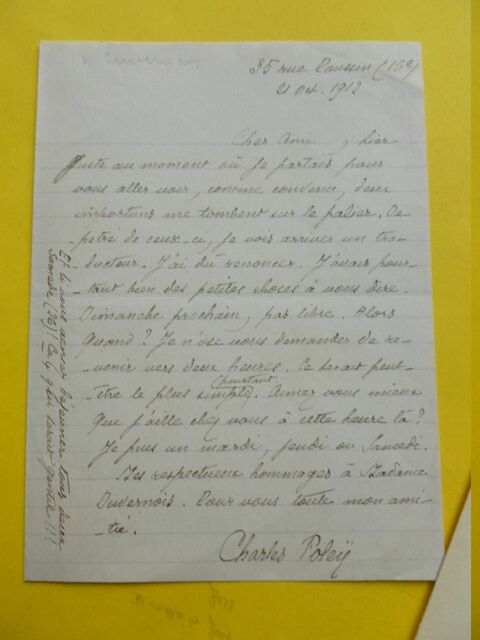 35 rue Cousin (16e)
21 Oct. 1912
Cher Ami, hier
juste au moment où je partais pour
vous aller voir, comme convenu, deux
importuns me tombent sur le palier. Dé
petré de ceux-ci, je vois arriver un tra-
-ducteur. J'ai dû renoncer. J'avais pour-
-tant bien des petites choses à vous dire.
Dimanche prochain, pas libre. Alors
quand? Je n'ose vous demander de re-
-venir vers deux heures. Ce serait peut-
-être le plus simple (pourtant). Aimez vous mieux
que j'aille chez vous à cette heure là?
Je puis un mardi, jeudi ou Samedi.
Mes respectueux hommages à Madame
Duvernois. Pour vous toute mon ami-
-tié.
Charles Foleÿ
Et si vous veniez déjeuner tous deux
Samedi (26)! Ca serait gentil!!!